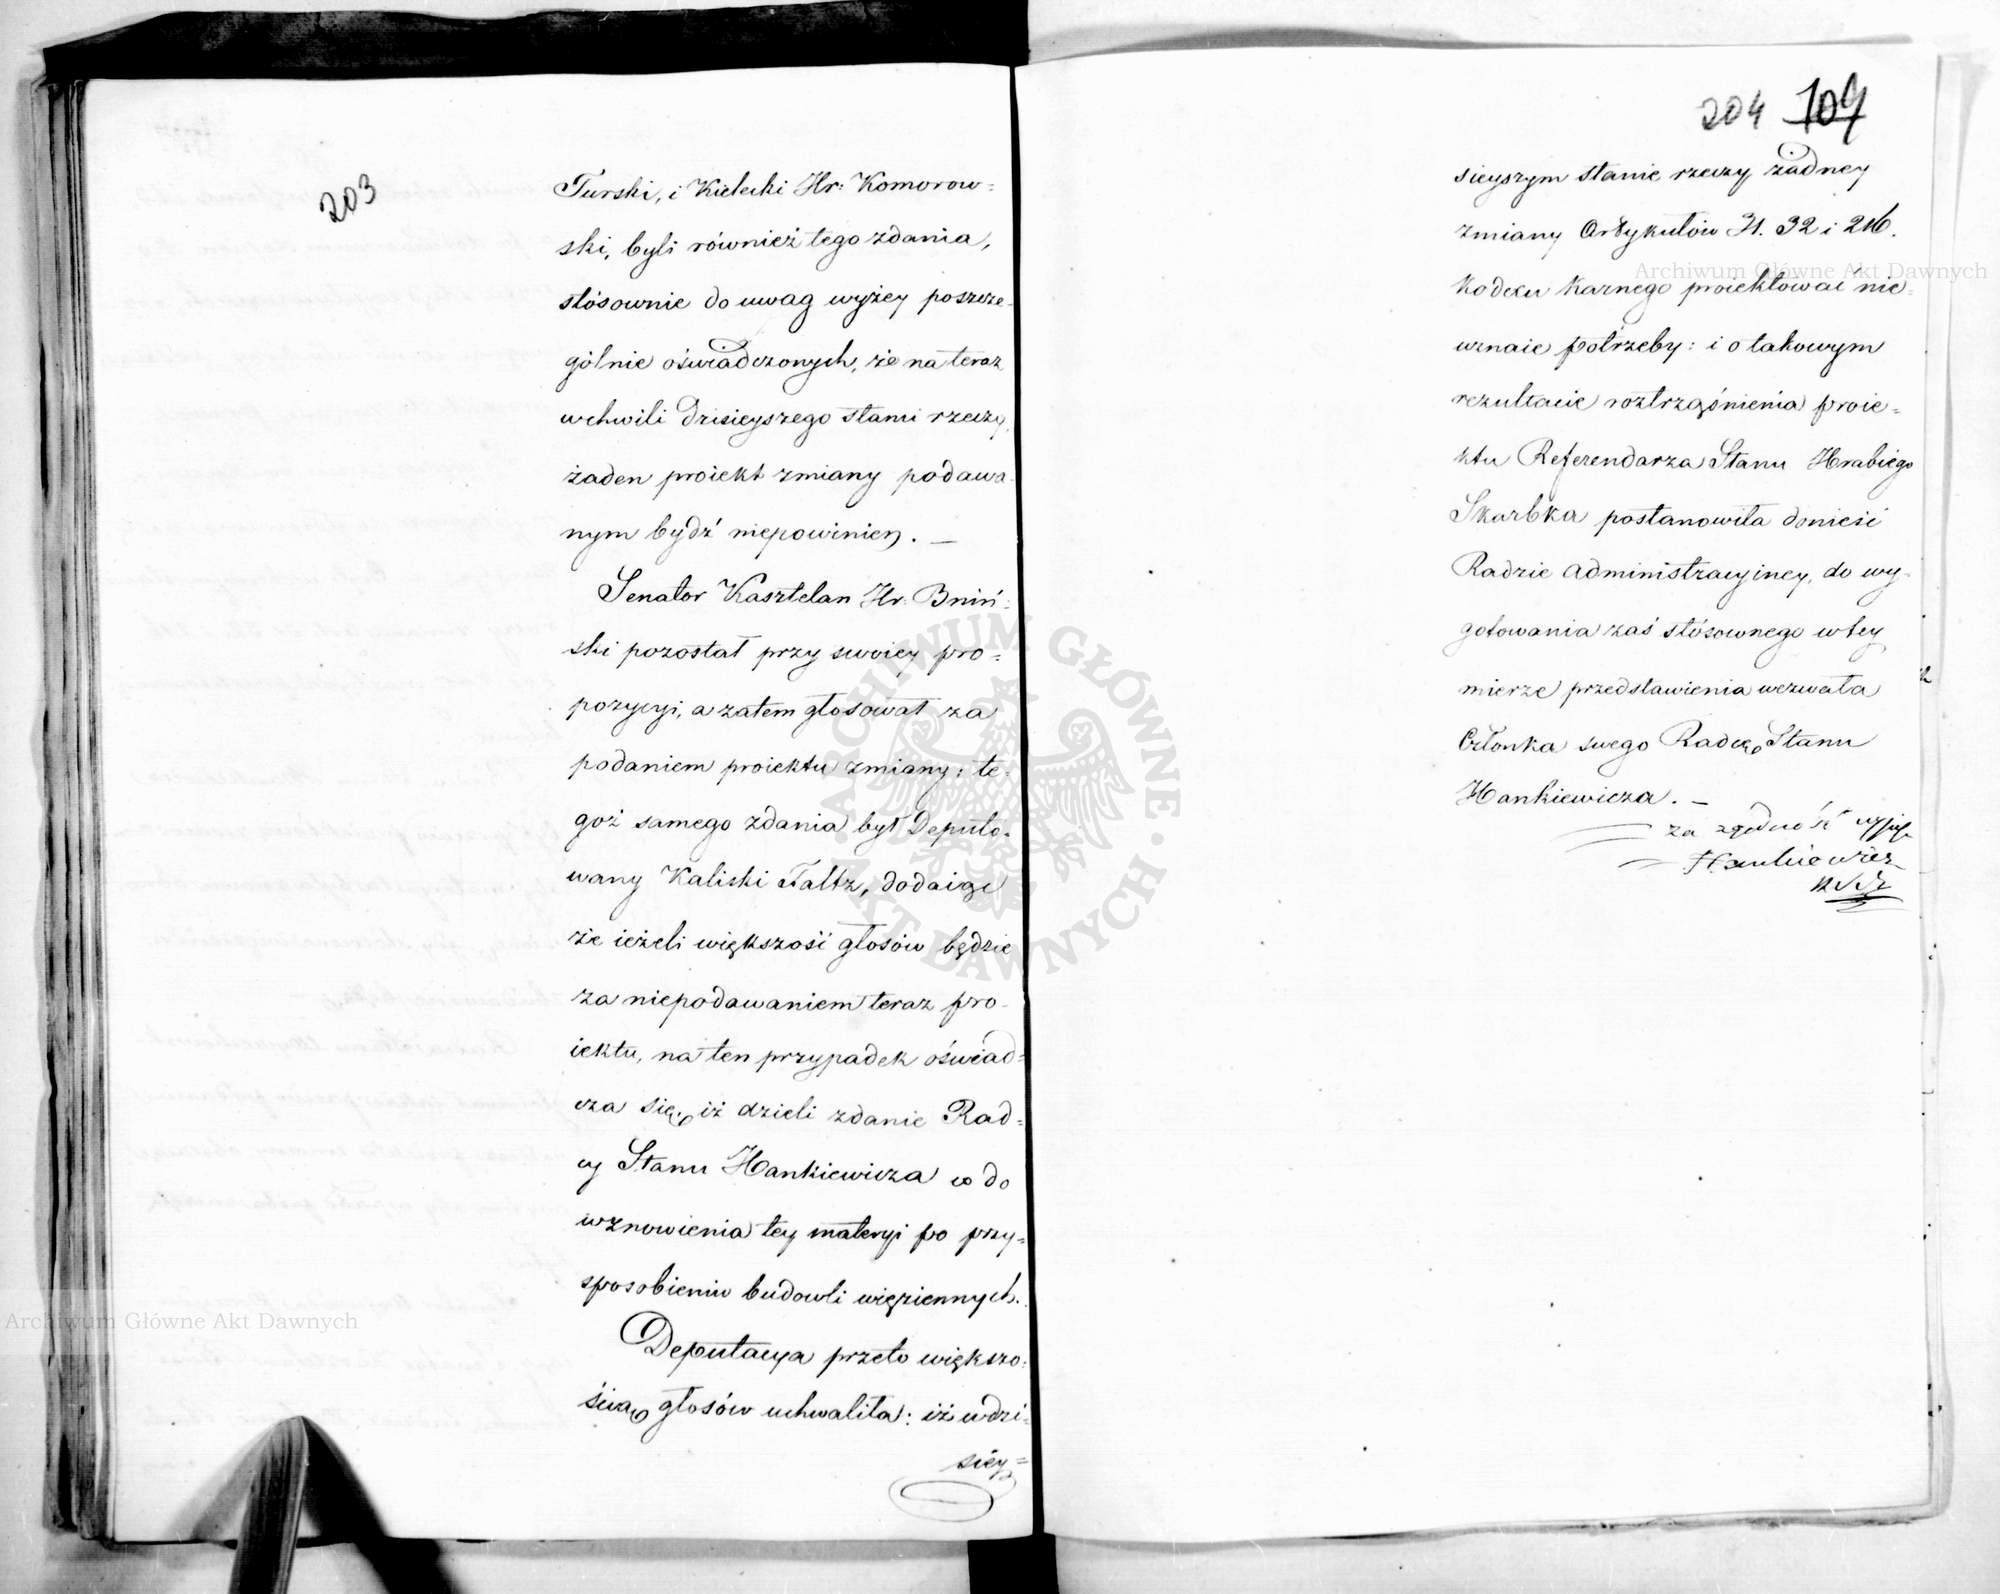 203
Turski, i Kielecki Hr: Komorow=
ski, byli również tego zdania,
stósownie do uwag wyżey poszcze-
gólnie oświadczonych, że na teraz
wchwili dzisieyszego stanu rzeczy,
żaden proiekt zmiany podawa-
nym bydź niepowinien. —
Senator Kasztelan Hr: Bniń=
ski pozostał przy swoiey pro=
pozycyi, a zatem głosował za
podaniem proiektu zmiany; te-
goż samego zdania był Deputo-
wany Kaliski Faltz, dodaiąc
że ieżeli większość głosów będzie
za niepodawaniem teraz pro-
iektu, na ten przypadek oświad=
cza się, iż dzieli zdanie Rad=
cy Stanu Hankiewicza co do
wznowienia tey materyi po przy=
sposobieniu budowli więziennych.
Deputacya przeto większo=
ścią głosów uchwaliła: iż wdzi=
siey=
204 104
sieyszym stanie rzeczy żadney
zmiany Artykułów 31. 32 i 216.
Kodexu Karnego proiektować nie=
uznaie potrzeby: i o takowym
rezultacie roztrząśnienia proie=
ktu Referendarza Stanu Hrabiego
Skarbka postanowiła donieść
Radzie Administracyiney, do wy-
gotowania zaś stósownego wtey
mierze przedstawienia wezwała
Członka swego Radcę Stanu
Hankiewicza. —
za zgodność
Hankiewicz
Archiwum Główne Akt Dawnych
Archiwum Główne Akt Dawnych
ARCHIWUM GŁÓWNE AKT DAWNYCH